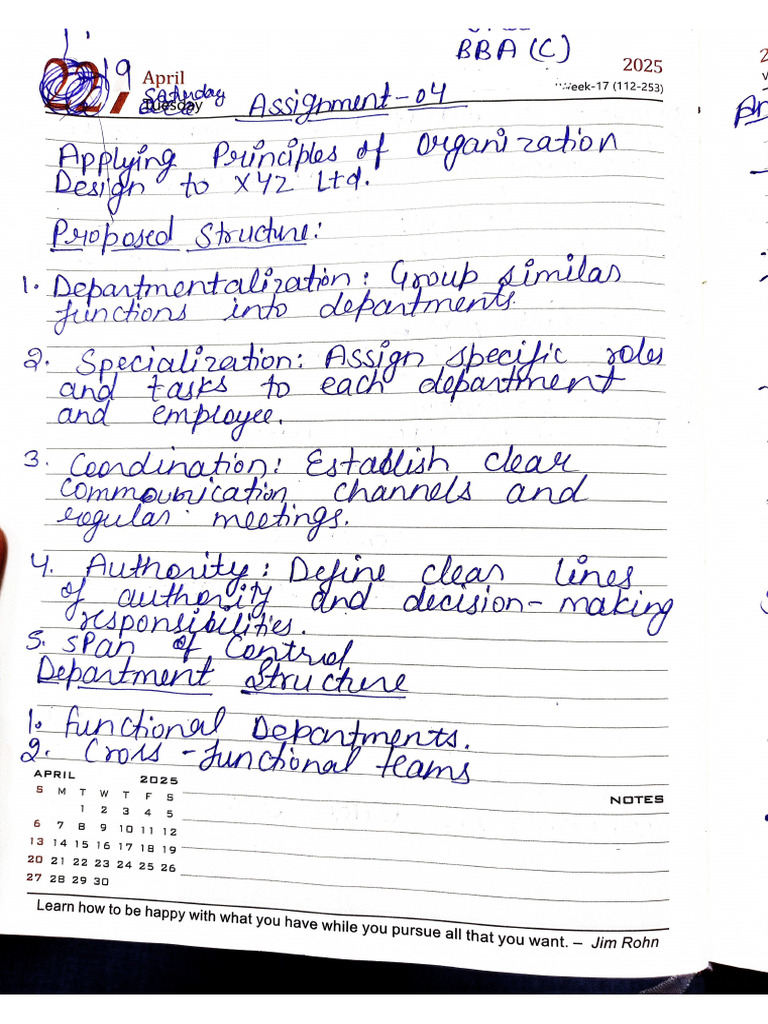 BBA (C)
19 April 2025
Saturday
Tuesday
Week-17 (112-253)
Assignment-04
Applying Principles of Organization
Design to XYZ Ltd.
Proposed Structure:
1. Departmentalization: Group similar
functions into departments.
2. Specialization: Assign specific roles
and tasks to each department
and employee.
3. Coordination: Establish clear
communication channels and
regular meetings.
4. Authority: Define clear lines
of authority and decision-making
responsibilities.
5. Span of Control
Department Structure
1. Functional Departments.
2. Cross-functional teams
APRIL 2025
S M T W T F S
1 2 3 4 5
6 7 8 9 10 11 12
13 14 15 16 17 18 19
20 21 22 23 24 25 26
27 28 29 30
NOTES
Learn how to be happy with what you have while you pursue all that you want. – Jim Rohn